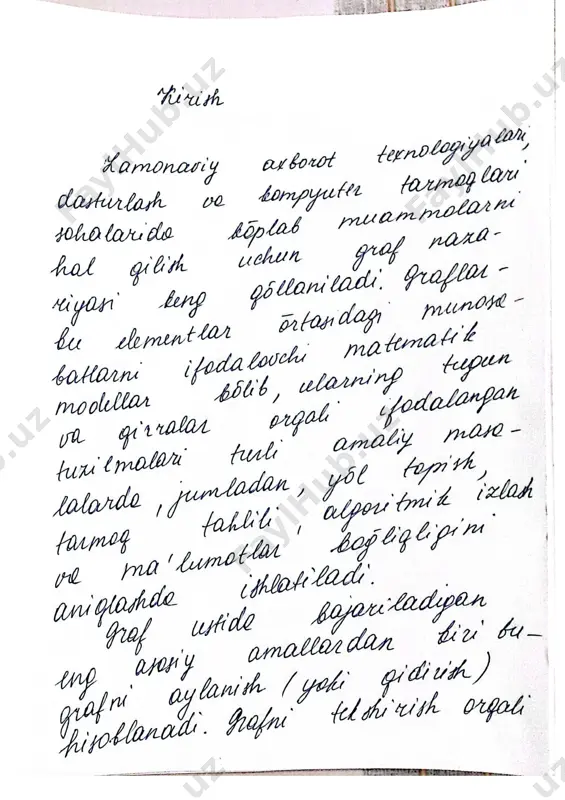 Kirish
Zamonaviy axborot texnologiyalari,
dasturlash va kompyuter tarmoqlari
sohalarida ko'plab muammolarni
hal qilish uchun graf naza-
riyasi keng qo'llaniladi. Graflar-
bu elementlar o'rtasidagi munosa-
batlarni ifodalovchi matematik
modellar bo'lib, ularning tugun
va qirralar orqali ifodalangan
tuzilmalari turli amaliy masa-
lalarda, jumladan, yo'l topish,
tarmoq tahlili, algoritmik izlash
va ma'lumotlar bog'liqligini
aniqlashda ishlatiladi.
Graf ustida bajariladigan
eng asosiy amallardan biri bu-
grafni aylanish (yoki qidirish)
hisoblanadi. Grafni tekshirish orqali
FaylHub.uz